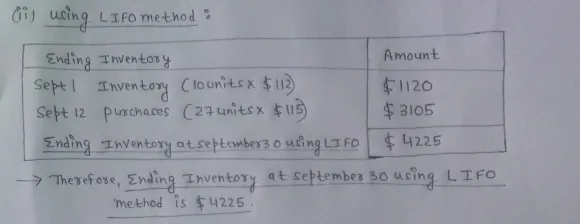 (ii) using LIFO method :
Ending Inventory Amount
Sept 1 Inventory (10 units x $ 112) $ 1120
Sept 12 purchases (27 units x $ 115) $ 3105
Ending Inventory at september 30 using LIFO $ 4225
→ Therefore, Ending Inventory at september 30 using LIFO
method is $ 4225.